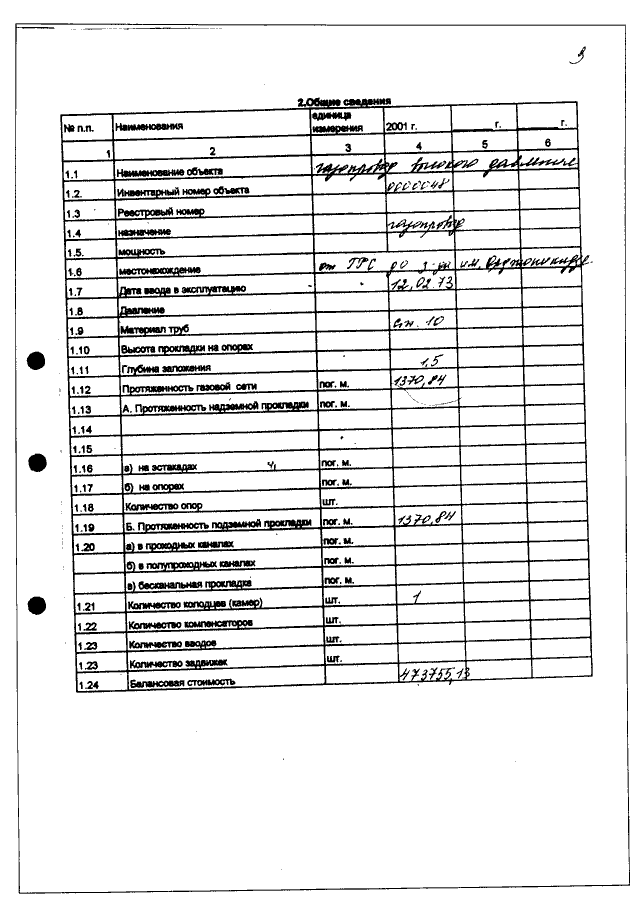 3
2.Общие сведения
№ п.п. Наименования единица измерения 2001 г. ______г. ______г.
1 2 3 4 5 6
1.1 Наименование объекта газопровод высокого давления
1.2. Инвентарный номер объекта 0000048
1.3 Реестровый номер
1.4 назначение газопровод
1.5. мощность
1.6 местонахождение от ГРС до з-да им. Орджоникидзе
1.7 Дата ввода в эксплуатацию 12.02.73
1.8 Давление
1.9 Материал труб ст. 10
1.10 Высота прокладки на опорах
1.11 Глубина заложения 1,5
1.12 Протяженность газовой сети пог. м. 1370,84
1.13 А. Протяженность надземной прокладки пог. м.
1.14
1.15
1.16 а) на эстакадах пог. м.
1.17 б) на опорах пог. м.
1.18 Количество опор шт.
1.19 Б. Протяженность подземной прокладки пог. м. 1370,84
1.20 а) в проходных каналах пог. м.
б) в полупроходных каналах пог. м.
в) бесканальная прокладка пог. м.
1.21 Количество колодцев (камер) шт. 1
1.22 Количество компенсаторов шт.
1.23 Количество вводов шт.
1.23 Количество задвижек шт.
1.24 Балансовая стоимость 473755,13